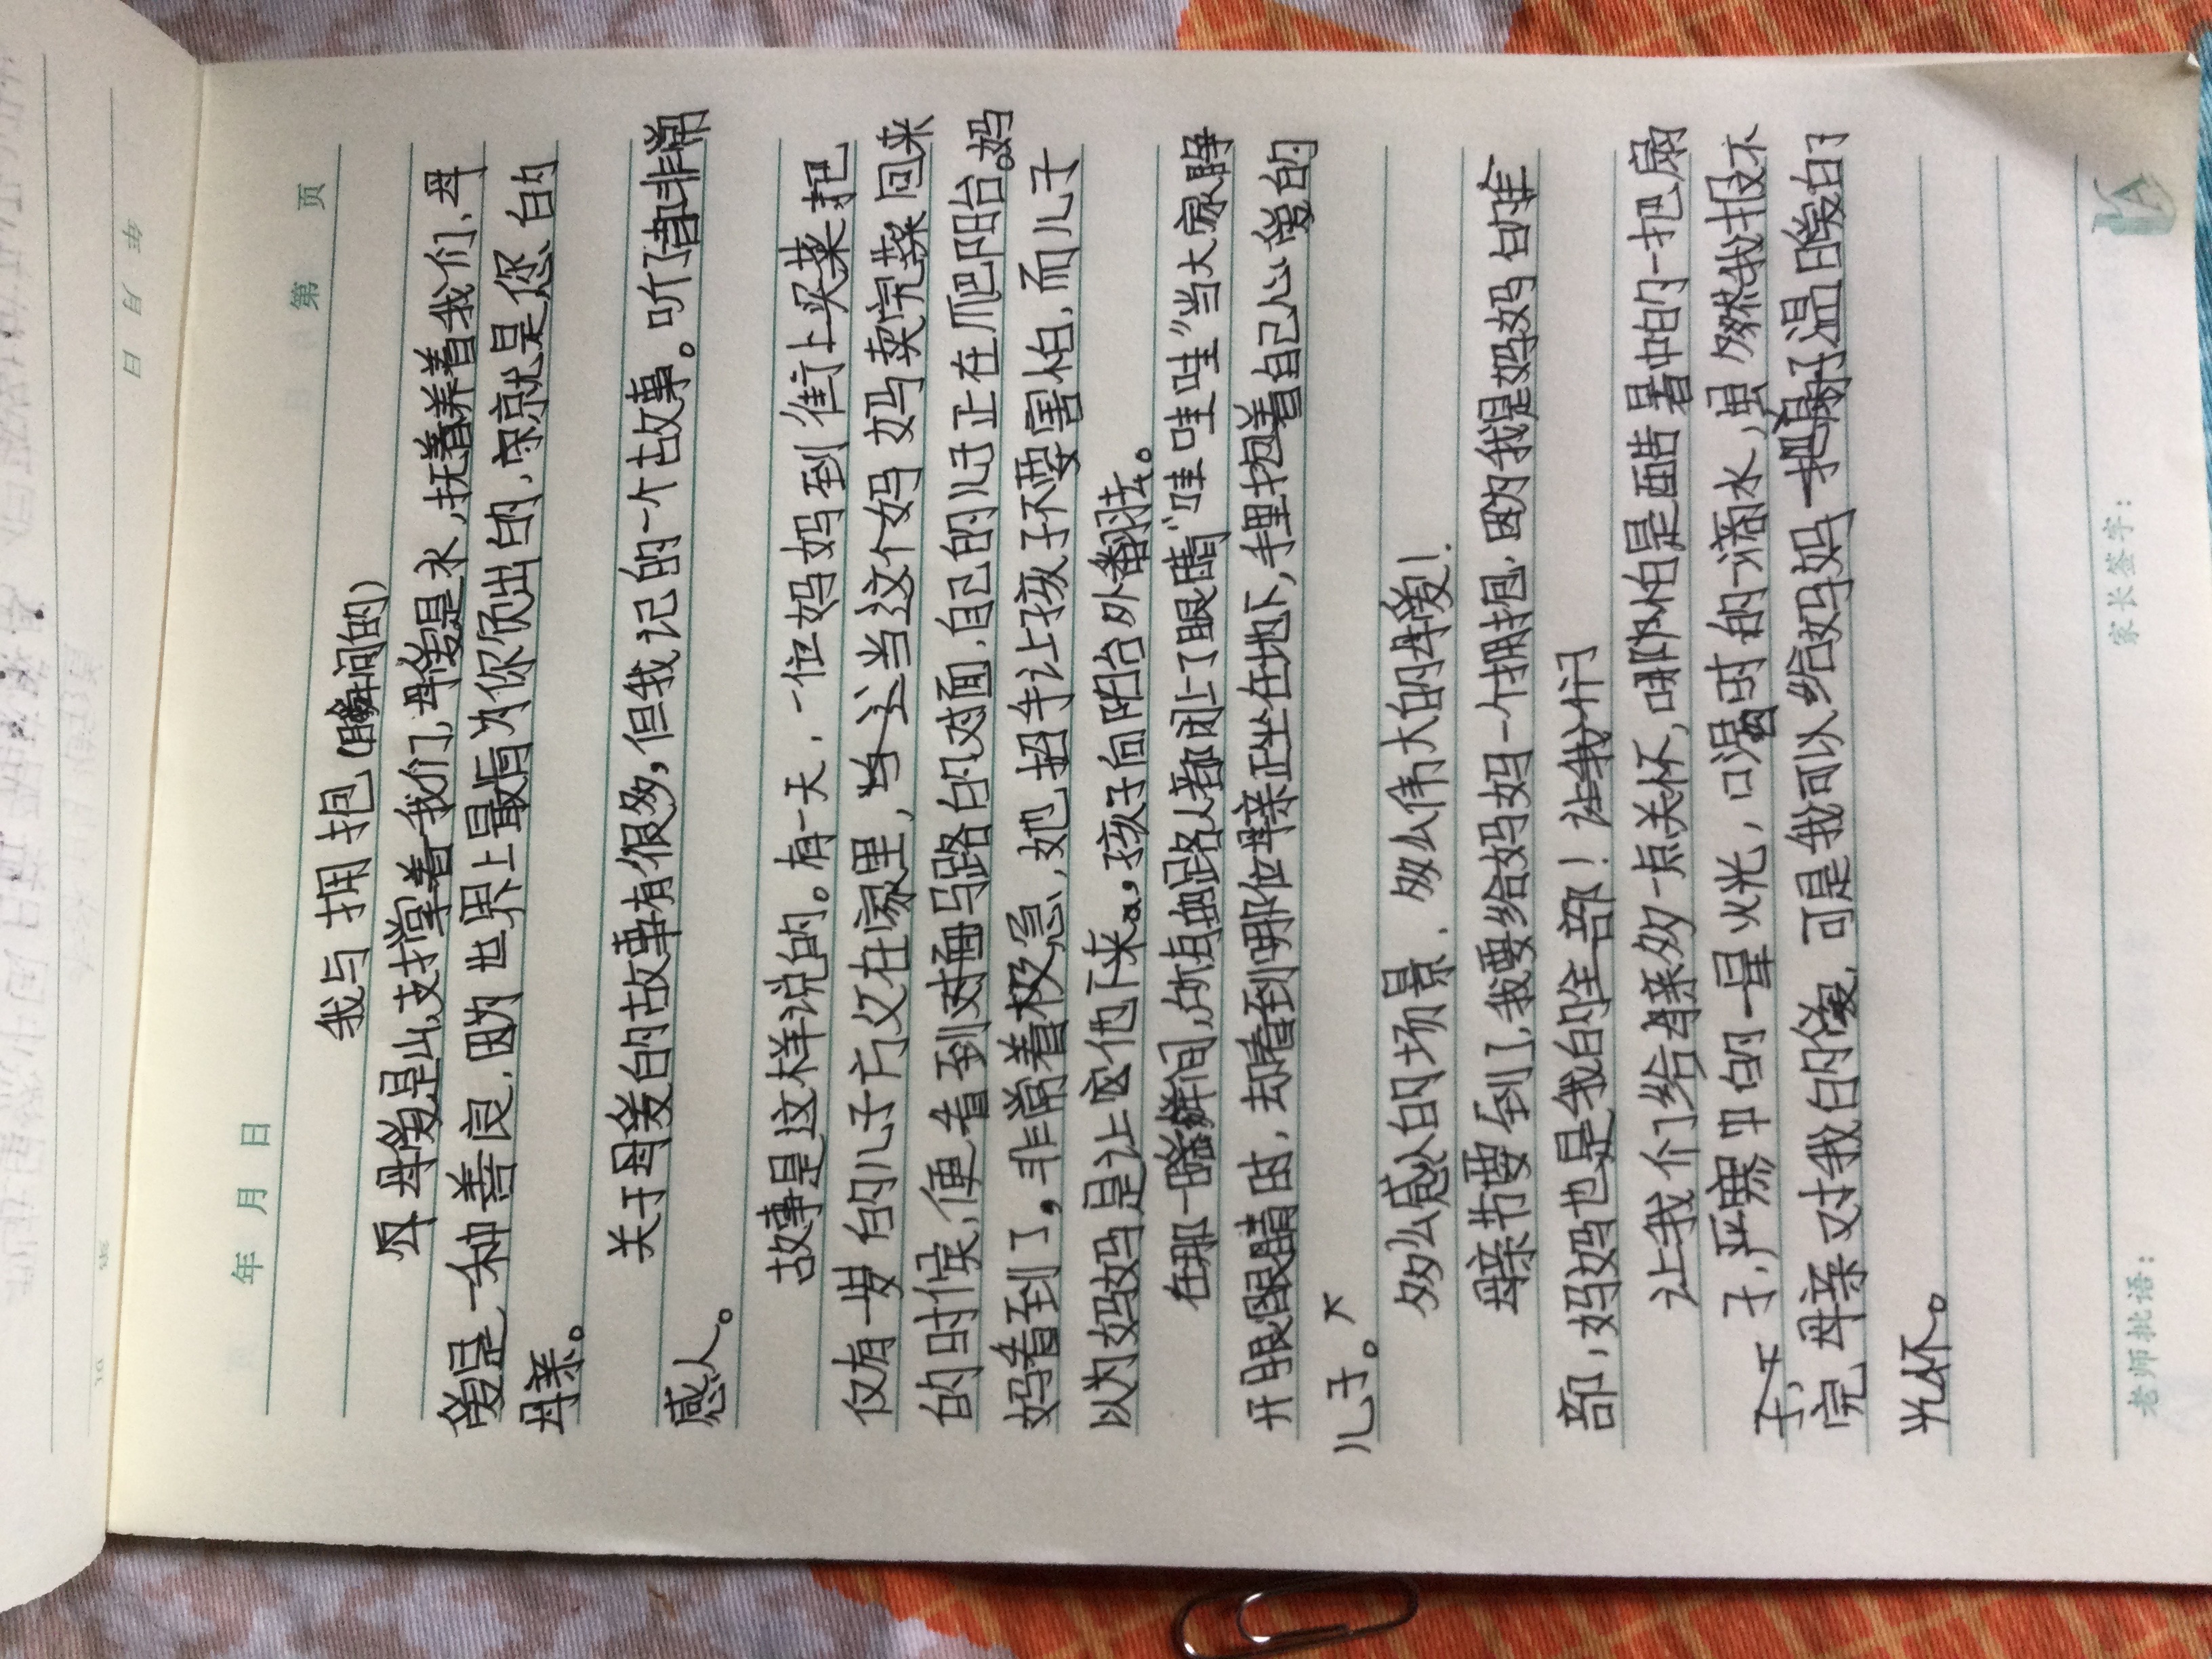 年 月 日
第 页
我与拥抱(瞬间的)
母爱是山,支撑着我们,母爱是水,抚养着我们,母
爱是一种善良,因为世界上最肯为你付出的,永就是您的
母亲。
关于母爱的故事有很多,但我记的一个故事。听了都非常
感人。
故事是这样说的。有一天,一位妈妈到街上买菜把
仅有一岁的儿子放在家里,当这个妈妈卖完菜回来
的时候,便看到对面马路的对面,自己的儿子正在爬阳台。妈
妈看到了,非常着极急,她招手让孩子不要害怕,而儿子
以为妈妈是让他下来。孩子向阳台外翻去。
在那一瞬间,路人都闭上了眼睛"哇哇哇"当大家睁
开眼睛时,却看到哪位母亲正坐在地下,手里抱着自己心爱的
儿子。
多么感人的场景,多么伟大的母爱!
母亲节要到了,我要给妈妈一个拥抱,因为我是妈妈的全
部,妈妈也是我的全部!让我们
让我们给母亲多一点关怀,哪怕是酷暑中的一把扇
子,严寒中的一星火光,口渴时的一滴水,虽然我报不
完母亲对我的爱,可是我可以给妈妈一把扇子温暖的
光怀。
老师批语:
家长签字:
年 月 日